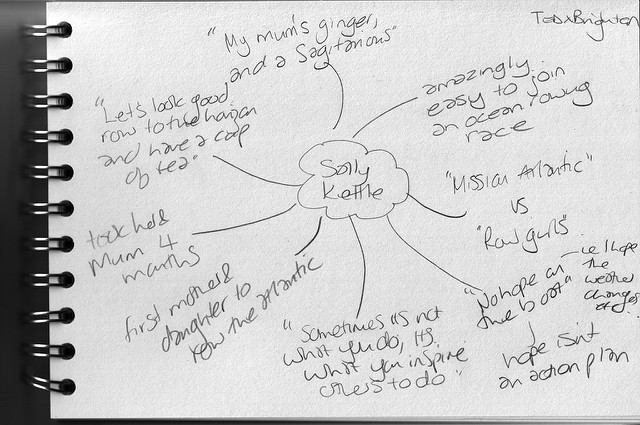 TEDxBrighton
"My mum's ginger,
and a Sagitarious"
amazingly
easy to join
an ocean rowing
race
"Let's look good,
row to the horizon
and have a cup
of tea"
Sally
Kettle
"Mission Atlantic"
vs
"Row girls"
took her &
Mum 4
months
first mother &
daughter to
row the atlantic
"Sometimes it's not
what you do, it's
what you inspire
others to do"
"No hope on
the boat"
ie I hope
the
weather
changes
hope isn't
an action plan